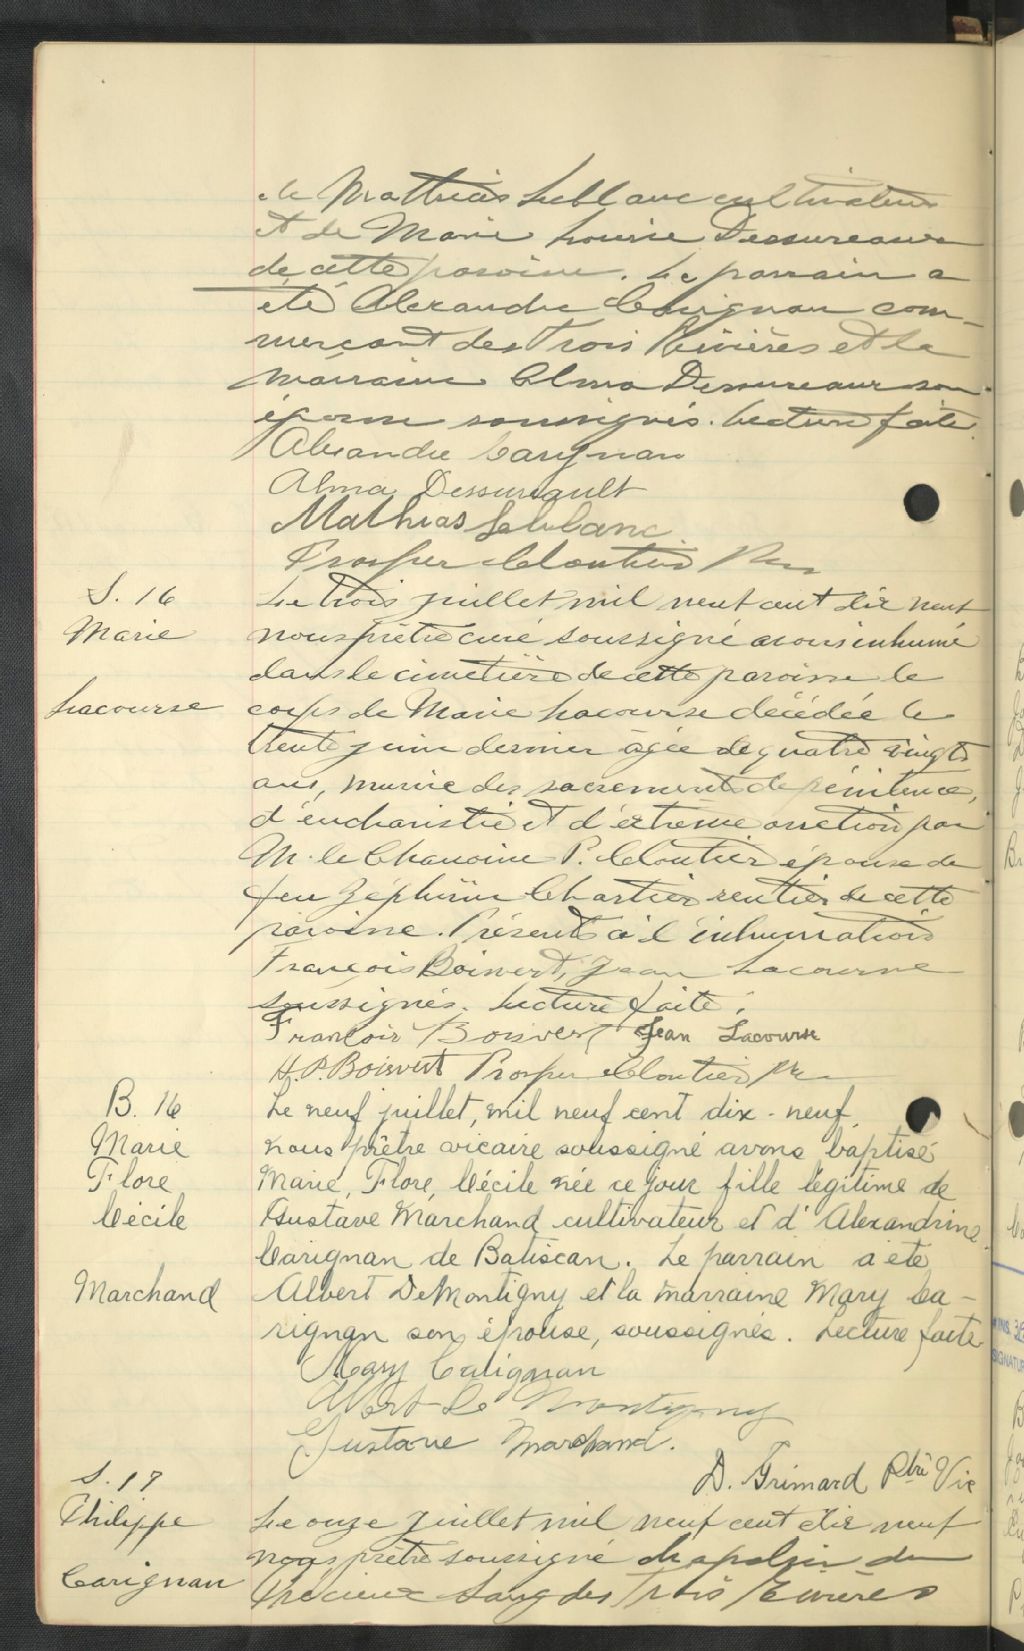 de Mathias Leblanc cultivateur
et de Marie Louise Dessureaux
de cette paroisse. Le parrain a
été Alexandre Carignan com-
merçant des Trois Rivières et la
marraine Alma Dessureaux son
épouse soussignés. Lecture faite.
Alexandre Carignan
Alma Dessureault
Mathias Leblanc
Prosper Cloutier Ptre
S. 16
Marie
Lacourse
Le trois juillet mil neuf cent dix neuf
nous prêtre curé soussigné avons inhumé
dans le cimetière de cette paroisse le
corps de Marie Lacourse décédée le
trente juin dernier âgée de quatre vingts
ans, munie des sacrements de pénitence,
d'eucharistie et d'extrême onction par
M. le Chanoine P. Cloutier épouse de
feu Zéphirin Chartier rentier de cette
paroisse. Présents à l'inhumation
François Boisvert, Jean Lacourse
soussignés. Lecture faite.
François Boisvert Jean Lacourse
H.P. Boisvert Prosper Cloutier Ptre
B. 16
Marie
Flore
Cécile
Marchand
Le neuf juillet, mil neuf cent dix-neuf
nous prêtre vicaire soussigné avons baptisé
Marie, Flore, Cécile née ce jour fille légitime de
Gustave Marchand cultivateur et d'Alexandrine
Carignan de Batiscan. Le parrain a été
Albert DeMontigny et la marraine Mary Ca-
rignan son épouse, soussignés. Lecture faite
Mary Carignan
Albert de Montigny
Gustave Marchand.
D. Grimard Ptre Vic
S. 17
Philippe
Carignan
Le onze juillet mil neuf cent dix neuf
nous prêtre soussigné chapelain du
Précieux Sang des Trois Rivières